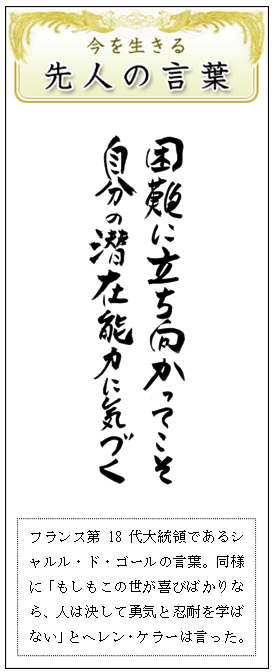 今を生きる
先人の言葉
困難に立ち向かってこそ
自分の潜在能力に気づく
フランス第 18 代大統領であるシ
ャルル・ド・ゴールの言葉。同様
に「もしもこの世が喜びばかりな
ら、人は決して勇気と忍耐を学ば
ない」とヘレン・ケラーは言った。